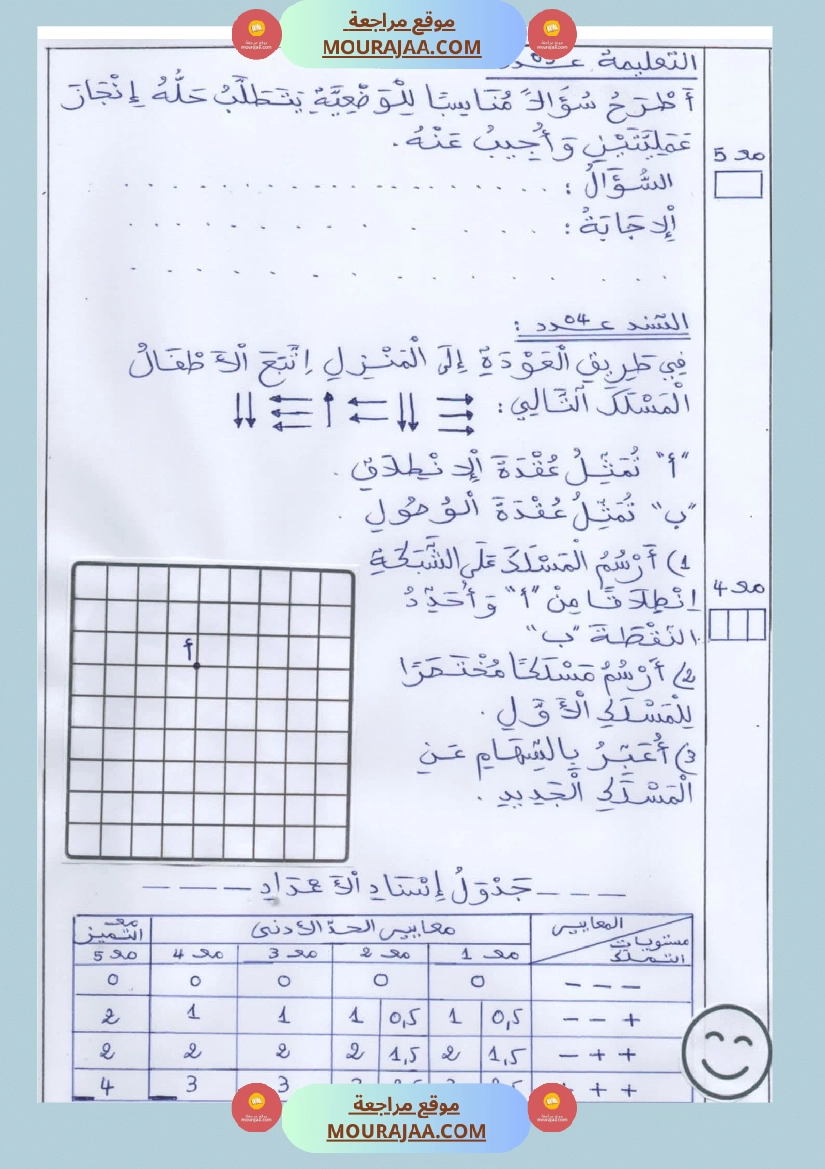 موقع مراجعة
MOURAJAA.COM
التعليمة عـ
أَطْرَحُ سُؤَالًا مُنَاسِبًا لِلْوَضْعِيَّةِ يَتَطَلَّبُ حَلُّهُ إِنْجَازَ
عَمَلِيَّتَيْنِ وَأُجِيبُ عَنْهُ.
مع 5
السُّؤَالُ :
اَلْإِجَابَةُ :
السّند عـ4ـدد :
فِي طَرِيقِ الْعَوْدَةِ إِلَى الْمَنْزِلِ اِتَّبَعَ الْأَطْفَالُ
الْمَسْلَكَ التَّالِي:
"أ" تُمَثِّلُ عُقْدَةَ الْاِنْطِلَاقِ.
"ب" تُمَثِّلُ عُقْدَةَ الْوُصُولِ.
1) أَرْسُمُ الْمَسْلَكَ عَلَى الشَّبَكَةِ
اِنْطِلَاقًا مِنْ "أ" وَأُحَدِّدُ
النُّقْطَةَ "ب"
مع 4
2) أَرْسُمُ مَسْلَكًا مُخْتَصَرًا
لِلْمَسْلَكِ الْأَوَّلِ.
3) أُعَبِّرُ بِالسِّهَامِ عَنِ
الْمَسْلَكِ الْجَدِيدِ.
أ
جَدْوَلُ إِسْنَادِ الْأَعْدَادِ
المعايير معايير الحدّ الأدنى مع التّميّز
مستويات التملك مع 1 مع 2 مع 3 مع 4 مع 5
- - - 0 0 0 0 0
+ - - 0,5 1 0,5 1 1 1 2
+ + - 1,5 2 1,5 2 2 2 2
+ + + 3 3 4
موقع مراجعة
MOURAJAA.COM